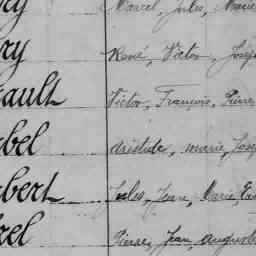 Marcel, Jules, Marie
ry René, Victor, Joseph
ault Victor, François, Pierre
bel Aristide, Marie, Jose
bert Jules, Jean, Marie
rel Pierre, Jean, Auguste